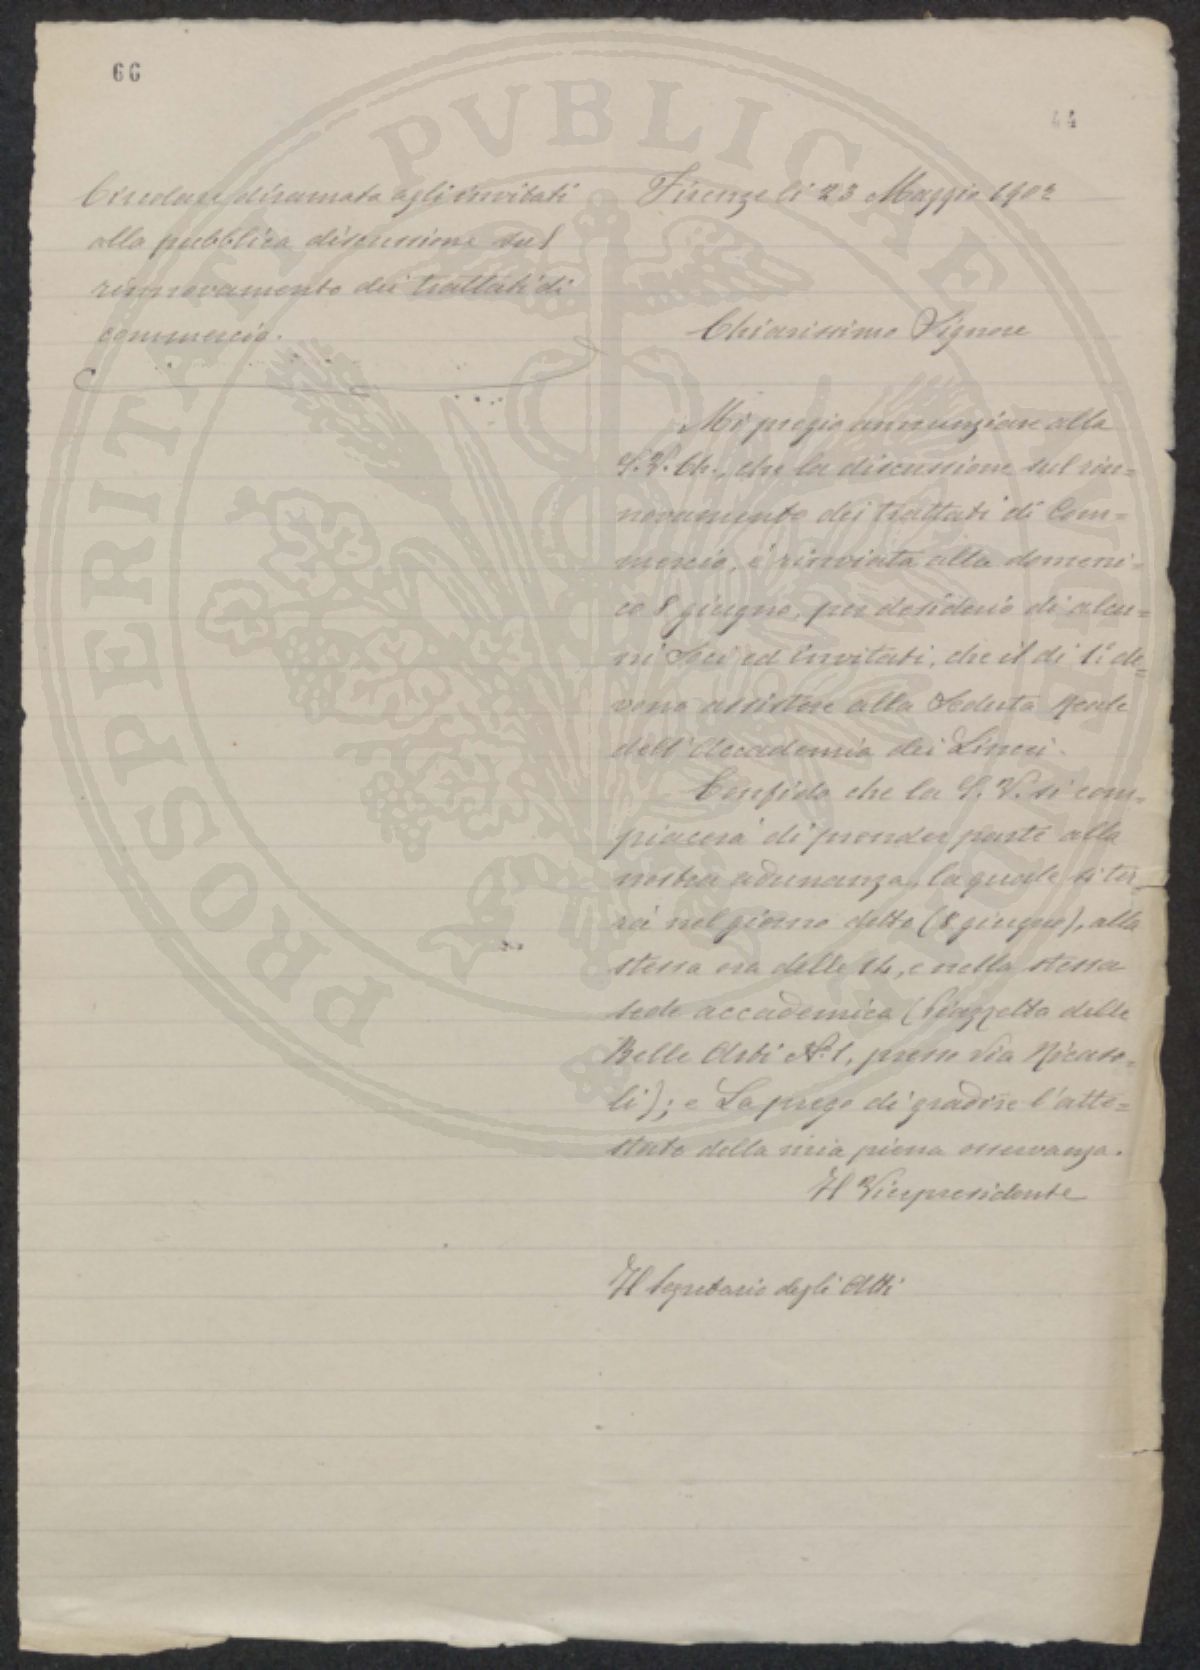 66
44
Circolare diramata agli invitati
alla pubblica discussione sul
rinnovamento dei trattati di
commercio.
Firenze li 23 Maggio 1902
Chiarissimo Signore
Mi pregio annunziare alla
S. V. Ch., che la discussione sul rin=
novamento dei trattati di Com=
mercio, è rinviata alla domeni=
ca 8 giugno, per desiderio di alcu=
ni Soci ed invitati, che il dì 1º de=
vono assistere alla Seduta Reale
dell'Accademia dei Lincei.
Confido che la S. V. si com=
piacerà di prender parte alla
nostra adunanza, la quale si ter=
rà nel giorno detto (8 giugno), alla
stessa ora delle 14, e nella stessa
sede accademica (Piazzetta delle
Belle Arti Nº 1, presso Via Ricaso=
li); e La prego di gradire l'atte=
stato della mia piena osservanza.
Il Vicepresidente
Il Segretario degli Atti
PROSPERITATI PVBLICAE AVGENDAE